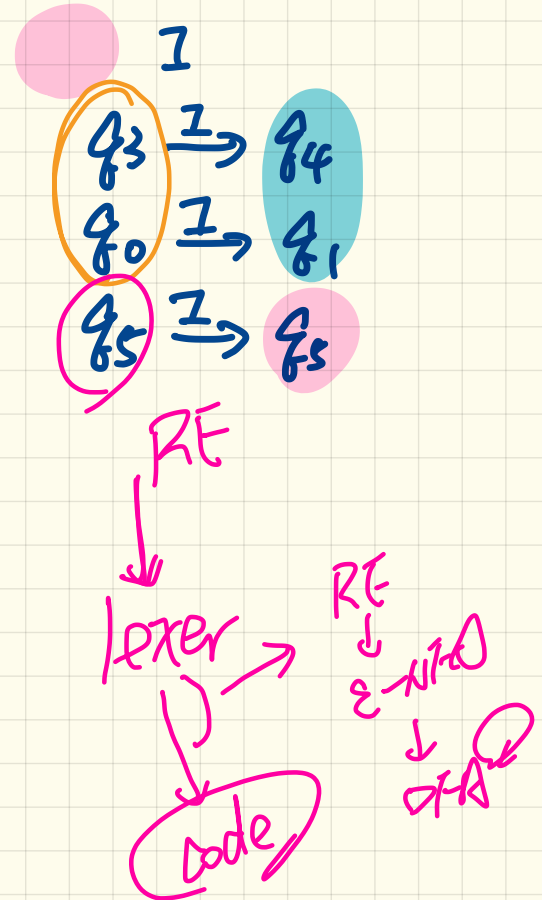 1
q3 1 → q4
q0 1 → q1
q5 1 → q5
RE
↓
lexer →
↓
code
RE
↓
ε-NFA
↓
DFA